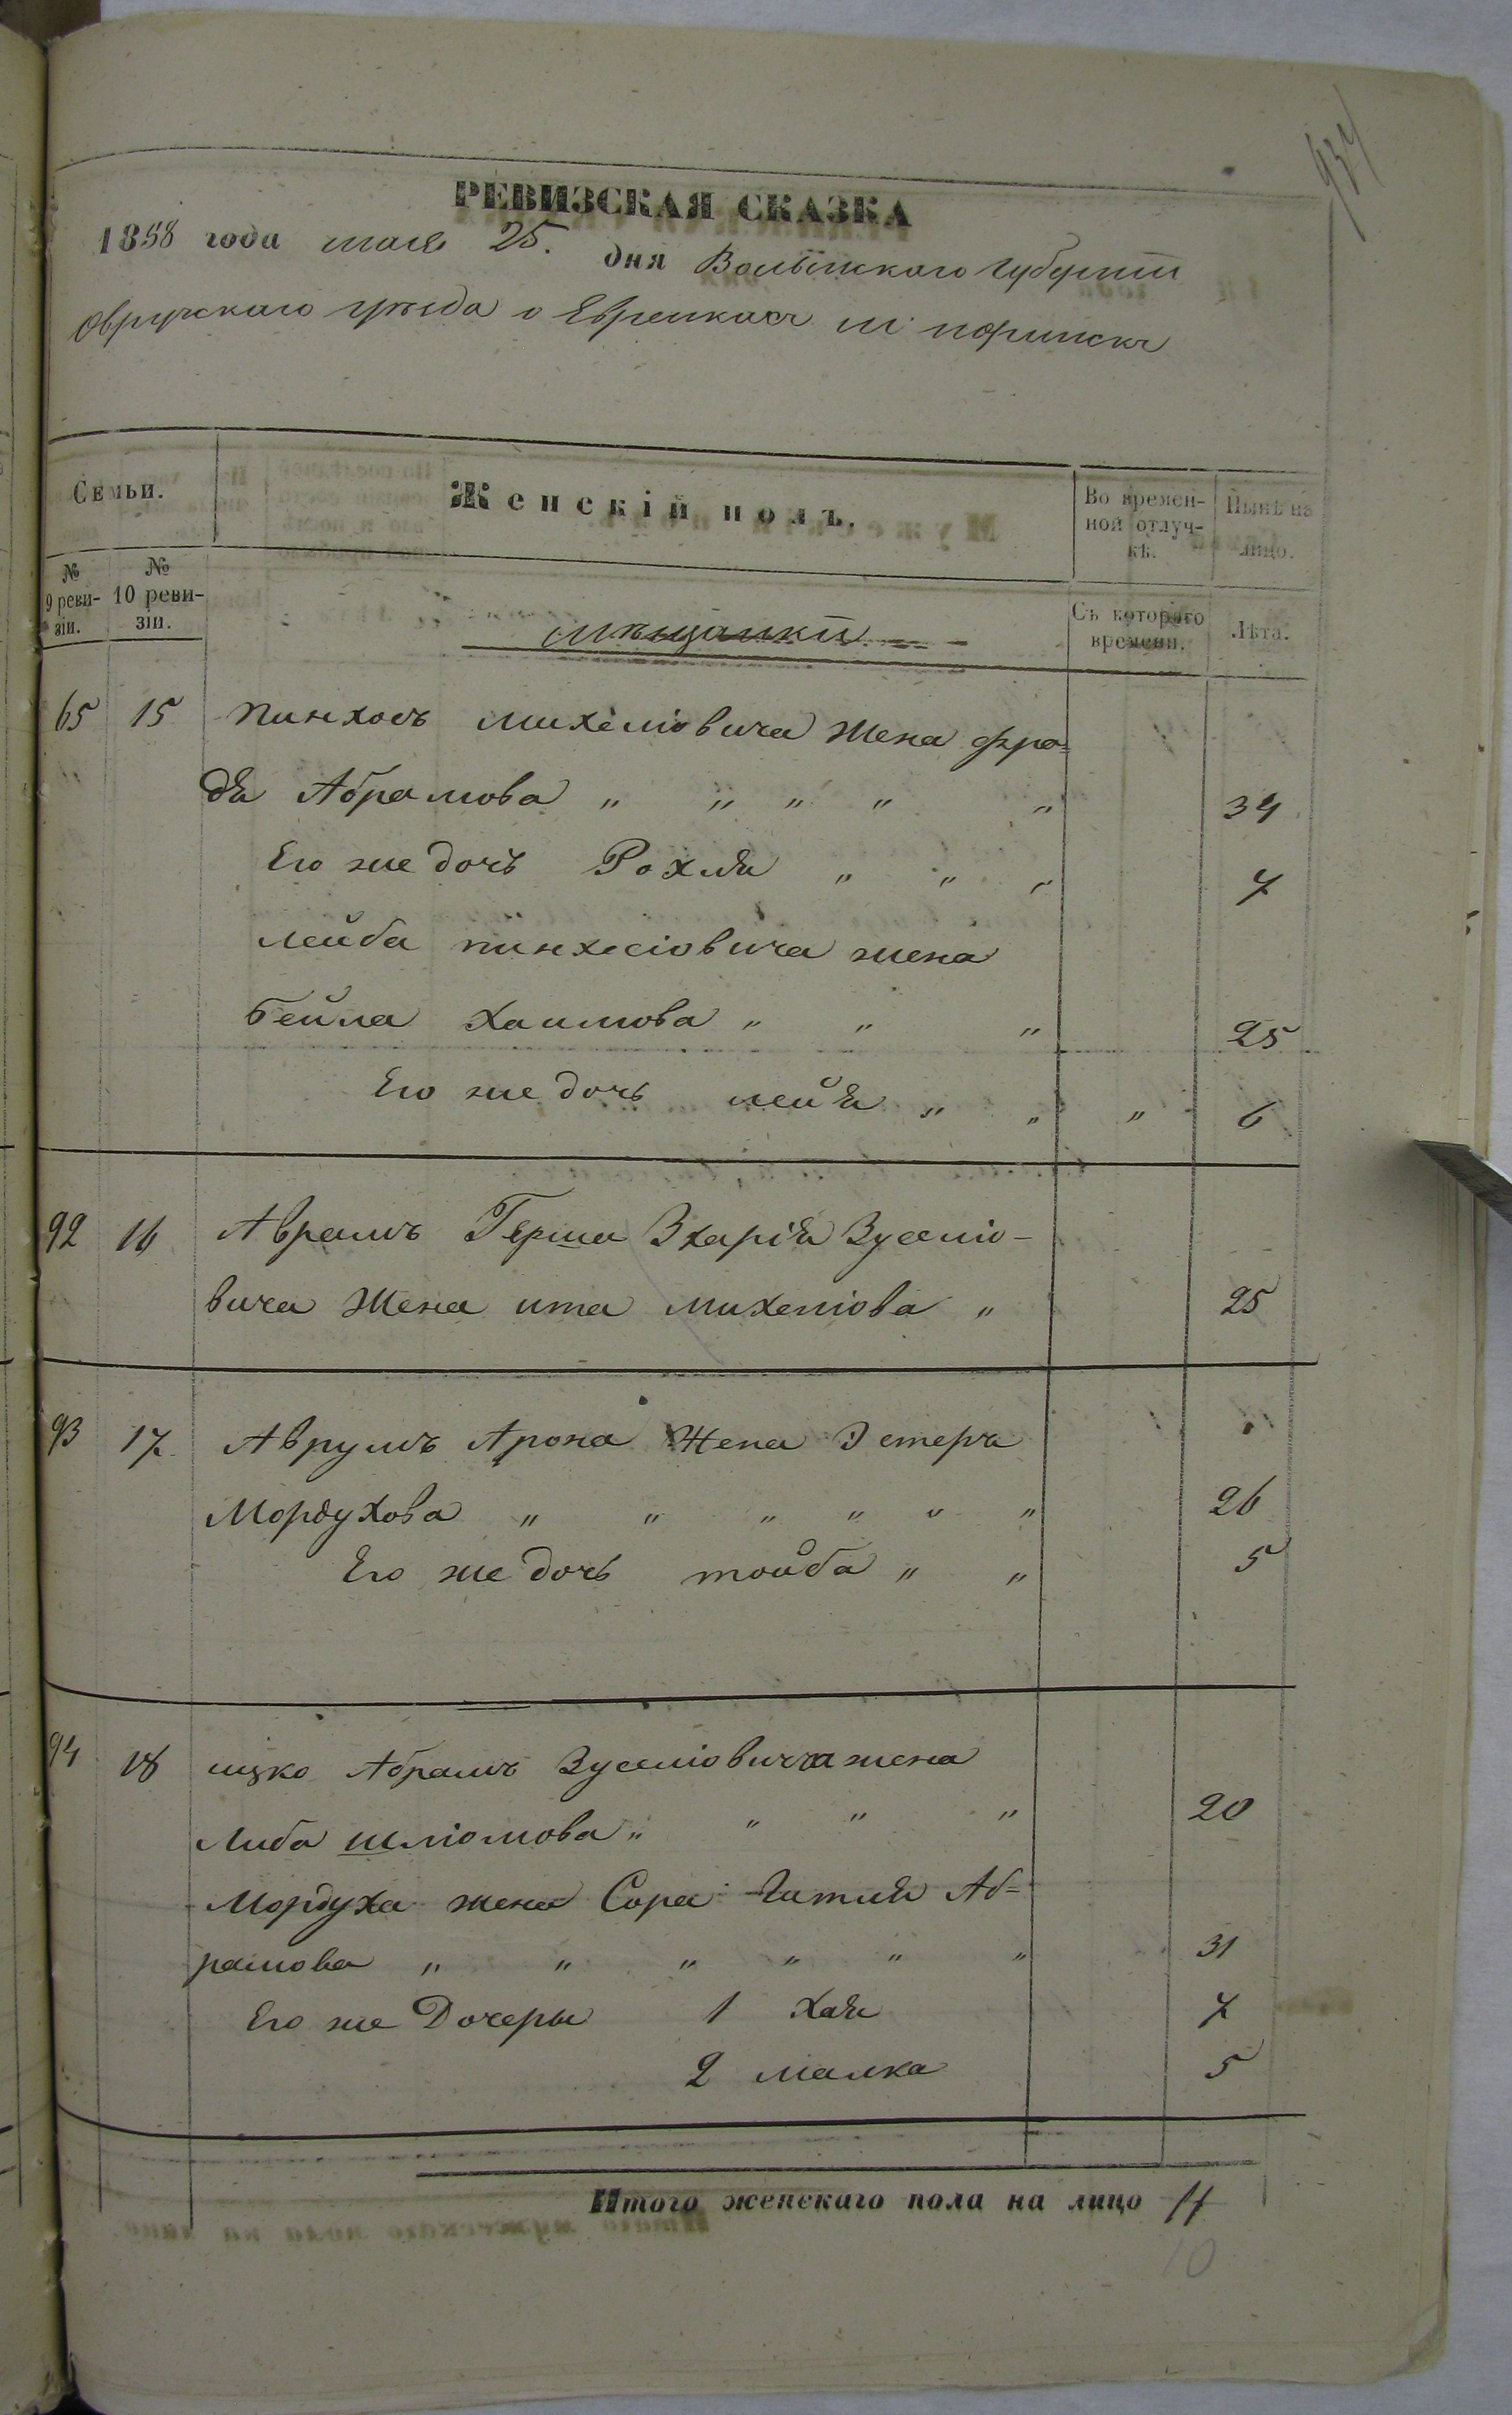 934
РЕВИЗСКАЯ СКАЗКА
1858 года мая 25. дня Волынскаго губернии
Овручскаго уезда о Еврейкахъ м: норинскъ
Семьи.
Женскій полъ.
Во времен-
ной отлуч-
кѣ.
Нынѣ на
лицо.
№
9 реви-
зіи.
№
10 реви-
зіи.
Мѣщанки
Съ котораго
времени.
Лѣта.
65 15 Пинхосъ Михеліовича Жена Фро=
дя Абрамова „ „ „ „ „ 34
Его же дочь Рохля „ „ „ 7
Лейба пинхесіовича жена
Бейла Хаимова „ „ „ 25
Его же дочь лейя „ „ „ 6
92 16 Аврамъ Герша Зхарія Зуселіо-
вича Жена ита Михеліова „ 25
93 17 Аврумъ Арона Жена Эстеръ
Мордухова „ „ „ „ „ „ 26
Его же дочь тойба „ „ 5
94 18 ицко Абрамъ Зуселіовича жена
Либа шліомова „ „ „ „ 20
Мордуха жена Сора Гитля Аб=
рамова „ „ „ „ „ „ 31
Его же Дочеры 1 Хая 7
2 малка 5
Итого женскаго пола на лицо 11
10